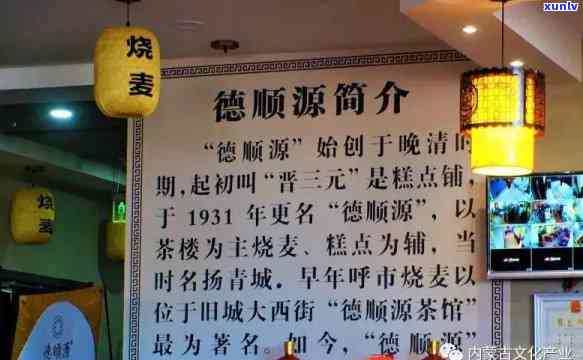 xunlv
烧麦
德顺源简介
“德顺源”始创于晚清时
期，起初叫“晋三元”是糕点铺，
于 1931 年更名“德顺源”，以
茶楼为主烧麦、糕点为辅，当
时名扬青城。早年呼市烧麦以
位于旧城大西街“德顺源茶馆”
最为著名。如今，“德顺源”
烧麦
德顺源
内蒙古文化产业